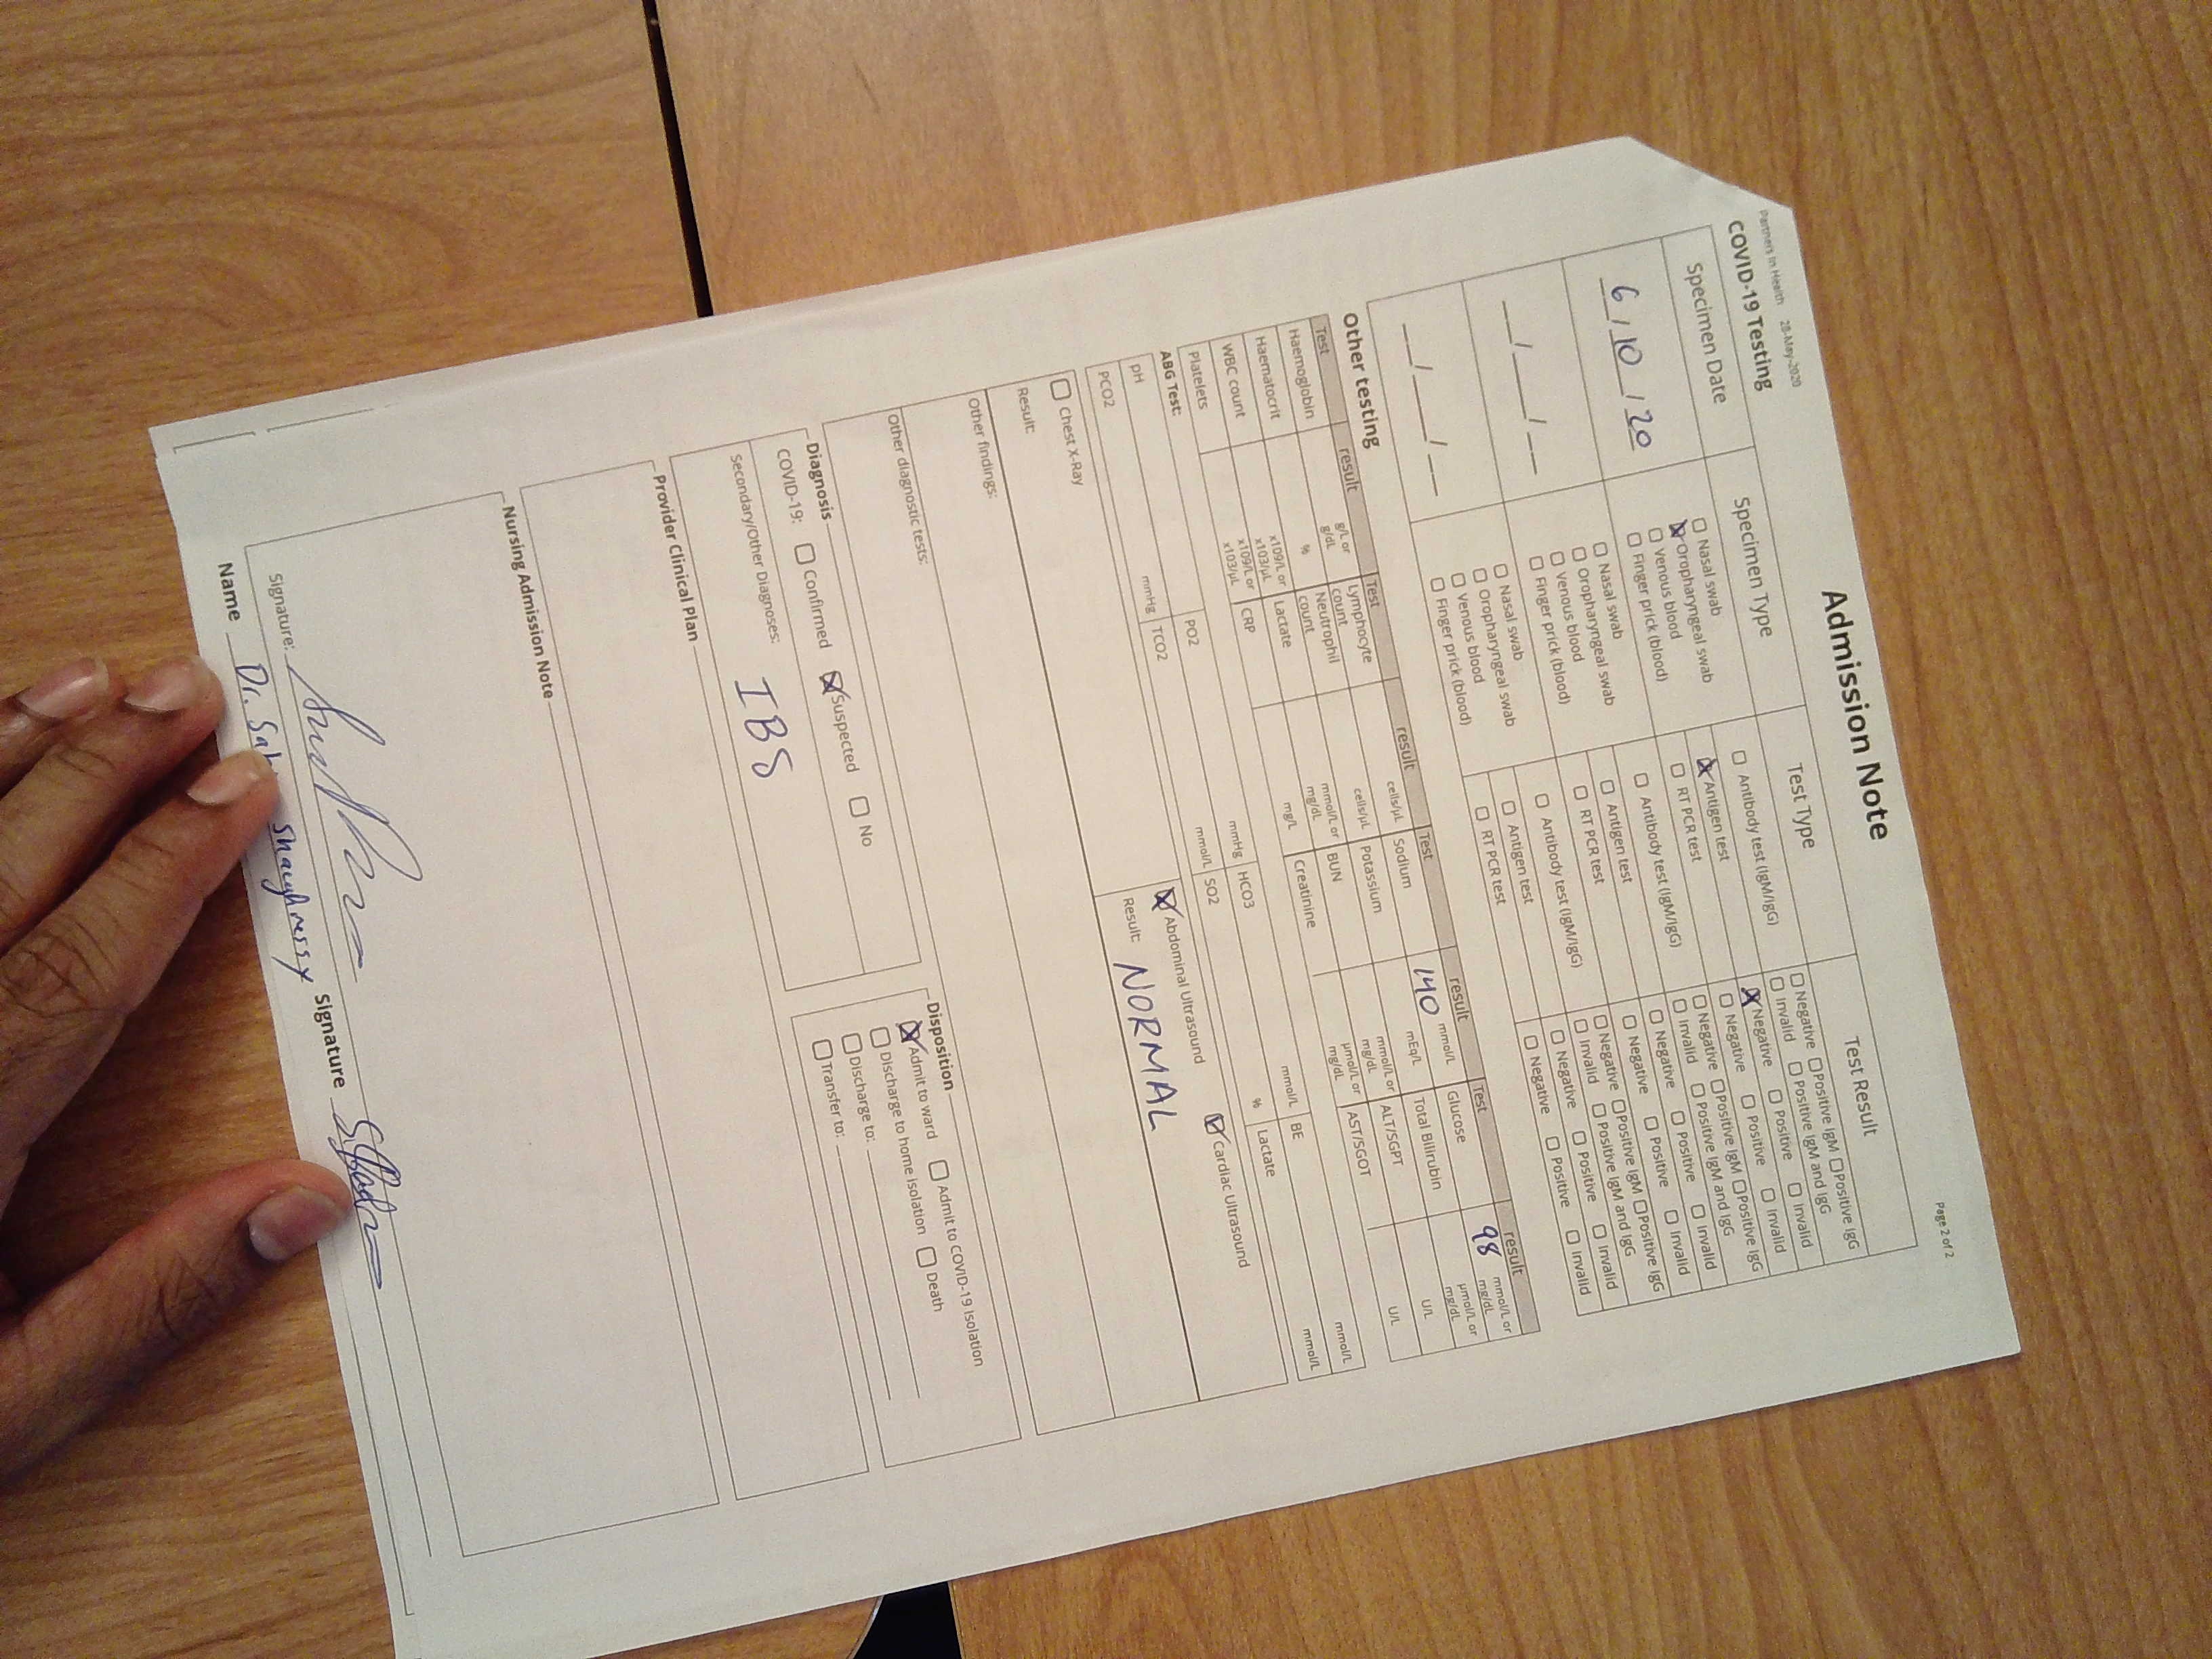 Partners In Health 28-May-2020
Page 2 of 2
Admission Note
COVID-19 Testing
Specimen Date Specimen Type Test Type Test Result
6 / 10 / 20
☐ Nasal swab
☒ Oropharyngeal swab
☐ Venous blood
☐ Finger prick (blood)
☐ Antibody test (IgM/IgG)
☒ Antigen test
☐ RT PCR test
☐ Negative ☐ Positive IgM ☐ Positive IgG
☐ Invalid ☐ Positive IgM and IgG
☒ Negative ☐ Positive ☐ Invalid
☐ Negative ☐ Positive ☐ Invalid
__/__/__
☐ Nasal swab
☐ Oropharyngeal swab
☐ Venous blood
☐ Finger prick (blood)
☐ Antibody test (IgM/IgG)
☐ Antigen test
☐ RT PCR test
☐ Negative ☐ Positive IgM ☐ Positive IgG
☐ Invalid ☐ Positive IgM and IgG
☐ Negative ☐ Positive ☐ Invalid
☐ Negative ☐ Positive ☐ Invalid
__/__/__
☐ Nasal swab
☐ Oropharyngeal swab
☐ Venous blood
☐ Finger prick (blood)
☐ Antibody test (IgM/IgG)
☐ Antigen test
☐ RT PCR test
☐ Negative ☐ Positive IgM ☐ Positive IgG
☐ Invalid ☐ Positive IgM and IgG
☐ Negative ☐ Positive ☐ Invalid
☐ Negative ☐ Positive ☐ Invalid
Other testing
Test result Test result Test result Test result
Haemoglobin g/L or g/dL Lymphocyte count cells/µL Sodium 140 mmol/L mEq/L Glucose 98 mmol/L or mg/dL
Haematocrit % Neutrophil count cells/µL Potassium Total Bilirubin µmol/L or mg/dL
WBC count x109/L or x103/µL Lactate mmol/L or mg/dL BUN mmol/L or mg/dL ALT/SGPT U/L
Platelets x109/L or x103/µL CRP mg/L Creatinine µmol/L or mg/dL AST/SGOT U/L
ABG Test:
pH PO2 mmHg HCO3 mmol/L BE mmol/L
PCO2 mmHg TCO2 mmol/L SO2 % Lactate mmol/L
☐ Chest X-Ray ☒ Abdominal Ultrasound ☒ Cardiac Ultrasound
Result: Result: NORMAL
Other findings:
Other diagnostic tests:
Diagnosis
COVID-19: ☐ Confirmed ☒ Suspected ☐ No
Secondary/Other Diagnoses:
IBS
Disposition
☒ Admit to ward ☐ Admit to COVID-19 Isolation
☐ Discharge to home isolation ☐ Death
☐ Discharge to:
☐ Transfer to:
Provider Clinical Plan
Nursing Admission Note
Signature:
Name Dr. Shaughnessy Signature